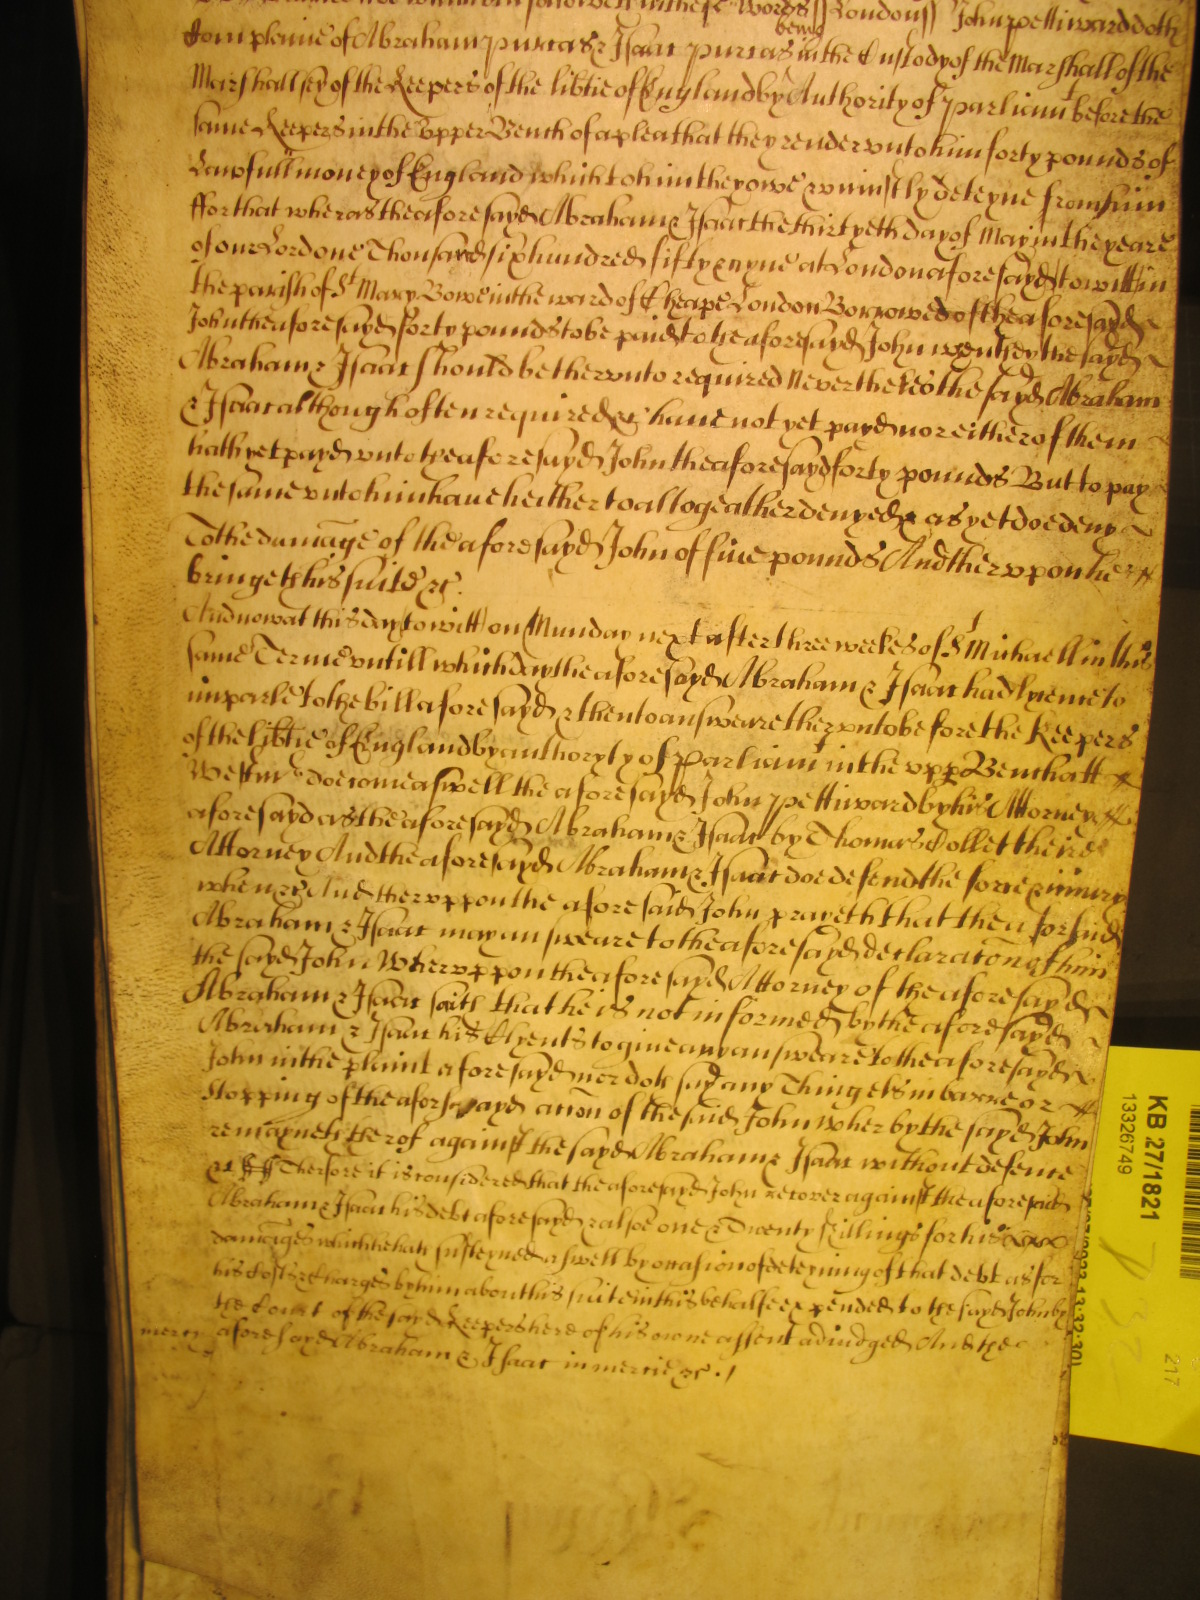 followeth in these Words // London // John Pettiward doth
Complaine of Abraham Purcas & Isaac Purcas being in the Custody of the Marshall of the
Marshallsey of the Keepers of the libtie of England by Authority of Parliam before the
same Keepers in the Upper Bench of a plea that they render unto him forty pounds of
Lawfull money of England which to him they owe & uniustly deteyne from him
ffor that wheras the aforesayd Abraham & Isaac the thirtyeth day of May in the yeare
of our Lord one Thousand six hundred fifty & nyne at London aforesayd to witt in
the parish of St Mary Bowe in the ward of Cheape London Borrowed of the aforesayd
John the aforesayd forty pounds to be paid to the aforesayd John when they the sayd
Abraham & Isaac should be therunto required Nevertheles the sayd Abraham
& Isaac although often required &c have not yet payd nor either of them
hath yet payd unto the aforesayd John the aforesayd forty pounds But to pay
the same unto him have heither to altogeather denyed & as yet doe deny
To the damage of the aforesayd John of five pounds And therupon he
bringeth his suite &c.
And now at this day to witt on Munday next after three weekes of St Michaell in this
same Terme untill which day the aforesayd Abraham & Isaac had lycence to
imparle to the bill aforesayd & then to answeare therunto before the Keepers
of the libtie of England by authoryty of Parliam in the upp Bench att
Westmr doe come aswell the aforesayd John Pettiward by his Attorney
aforesayd as the aforesayd Abraham & Isaac by Thomas Collet theire
Attorney And the aforesayd Abraham & Isaac doe defend the force & iniury
when &c And theruppon the aforesaid John prayeth that the aforsaid
Abraham & Isaac may answeare to the aforesayd declaracon of him
the sayd John Wheruppon the aforesayd Attorney of the aforesayd
Abraham & Isaac saith that he is not informed by the aforesayd
Abraham & Isaac his Clyents to give any answeare to the aforesayd
John in the plaint aforesayd nor doth say any Thing els in barre or
stopping of the aforesayd acton of the said John wherby the sayd John
remayneth therof against the sayd Abraham & Isaac without defence
&c Therfore it is considered that the aforesayd John recover against the aforesaid
Abraham & Isaac his debt aforesayd & alsoe one & Twenty shillings for his
damages which he hath susteyned aswell by occasion of deteyning of that debt as for
his costs & charges by him about his suite in this behalfe expended to the sayd John by
the Court of the sayd Keepers here of his owne assent adiudged And the
mercy aforesayd Abraham & Isaac in mercie &c. /
KB 27/1821
13326749
217